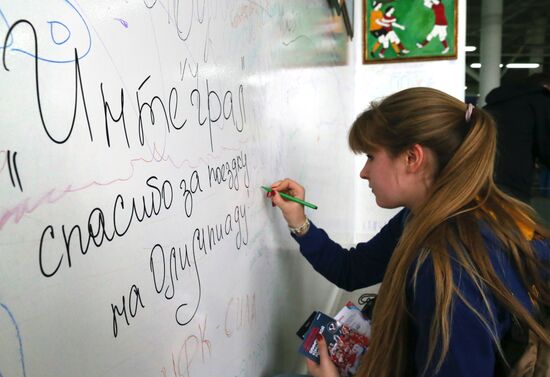 "Интеграл"
спасибо за поездку
на Олимпиаду
УРК-СИЛА